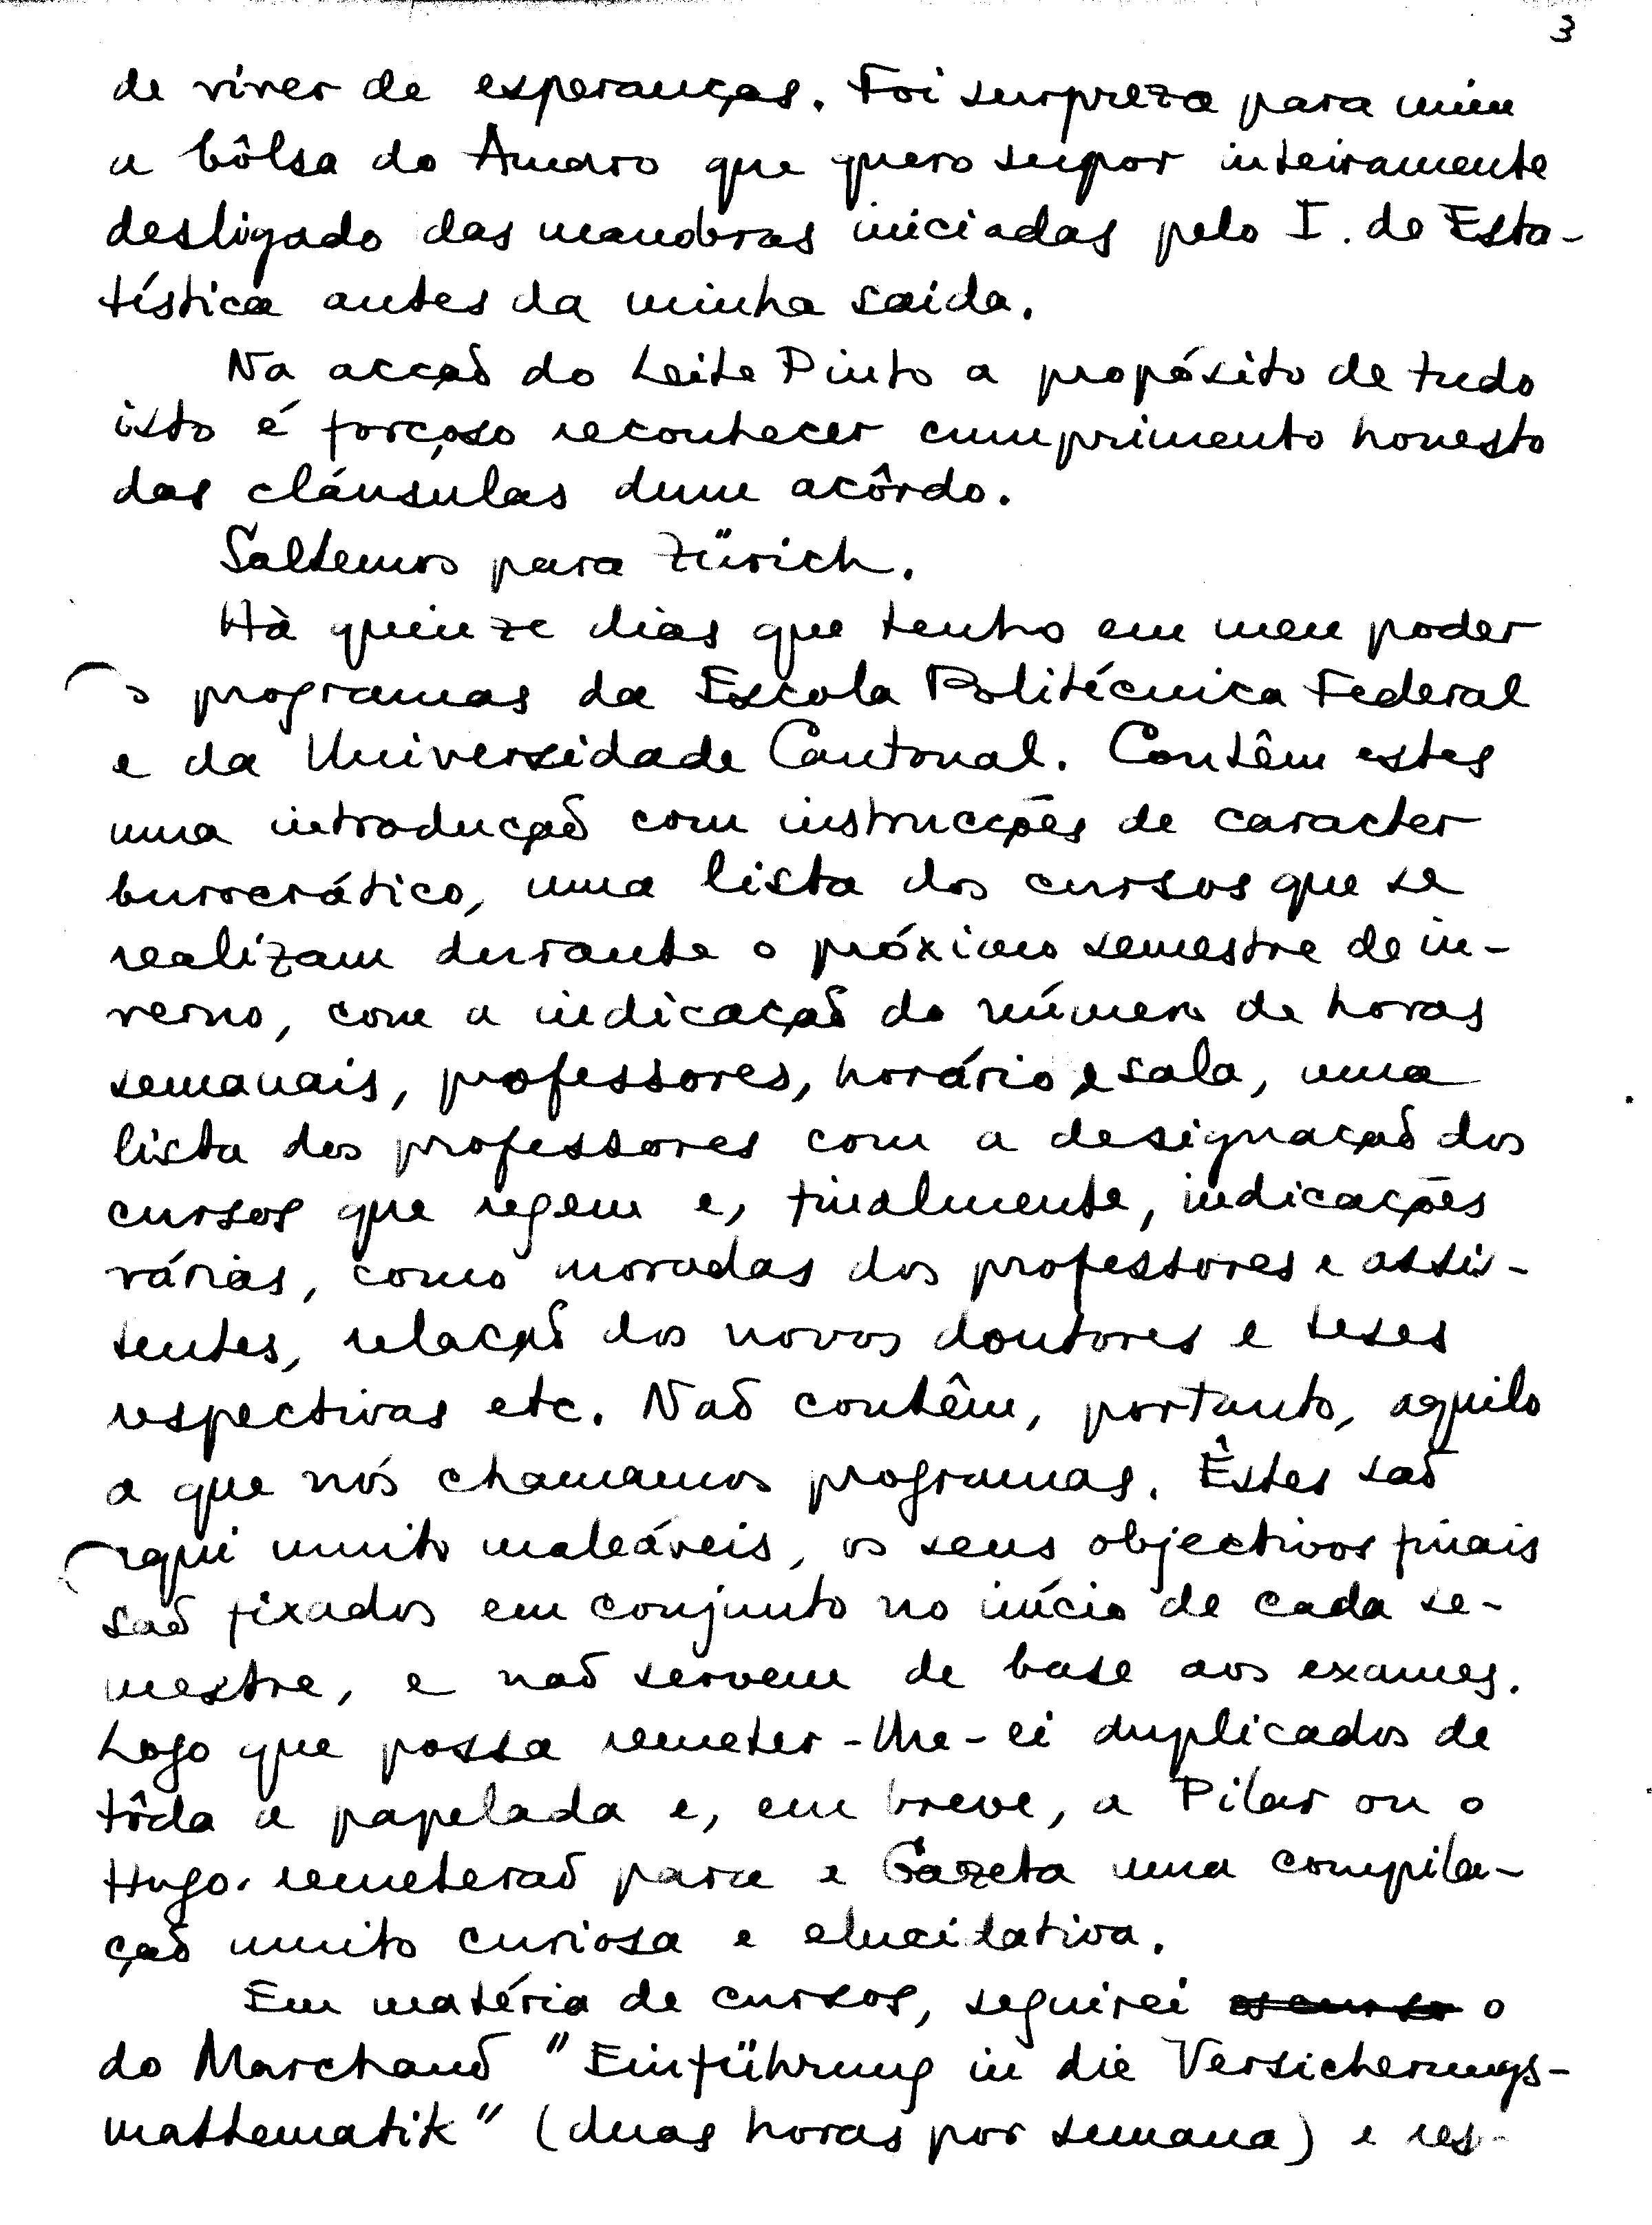 3
de viver de esperanças. Foi surpreza para mim
a bôlsa do Amaro que quero supor inteiramente
desligado das manobras iniciadas pelo I. de Esta-
tística antes da minha saída.
Na acção do Leite Pinto a propósito de tudo
isto é forçoso reconhecer cumprimento honesto
das cláusulas dum acôrdo.
Saltemos para Zürich.
Há quinze dias que tenho em meu poder
os programas da Escola Politécnica Federal
e da Universidade Cantonal. Contêm estes
uma introdução com instrucções de caracter
burocrático, uma lista dos cursos que se
realizam durante o próximo semestre de in-
verno, com a indicação do número de horas
semanais, professores, horário e sala, uma
lista dos professores com a designação dos
cursos que regem e, finalmente, indicações
várias, como moradas dos professores e assis-
tentes, relação dos novos doutores e teses
respectivas etc. Não contêm, portanto, aquilo
a que nós chamamos programas. Êstes são
aqui muito maleáveis, os seus objectivos finais
são fixados em conjunto no início de cada se-
mestre, e não servem de base aos exames.
Logo que possa remeter-lhe-ei duplicados de
tôda a papelada e, em breve, a Pilar ou o
Hugo remeterão para a Gazeta uma compila-
ção muito curiosa e elucidativa.
Em matéria de cursos, seguirei o
do Marchand "Einführung in die Versicherungs-
mathematik" (duas horas por semana) e res-